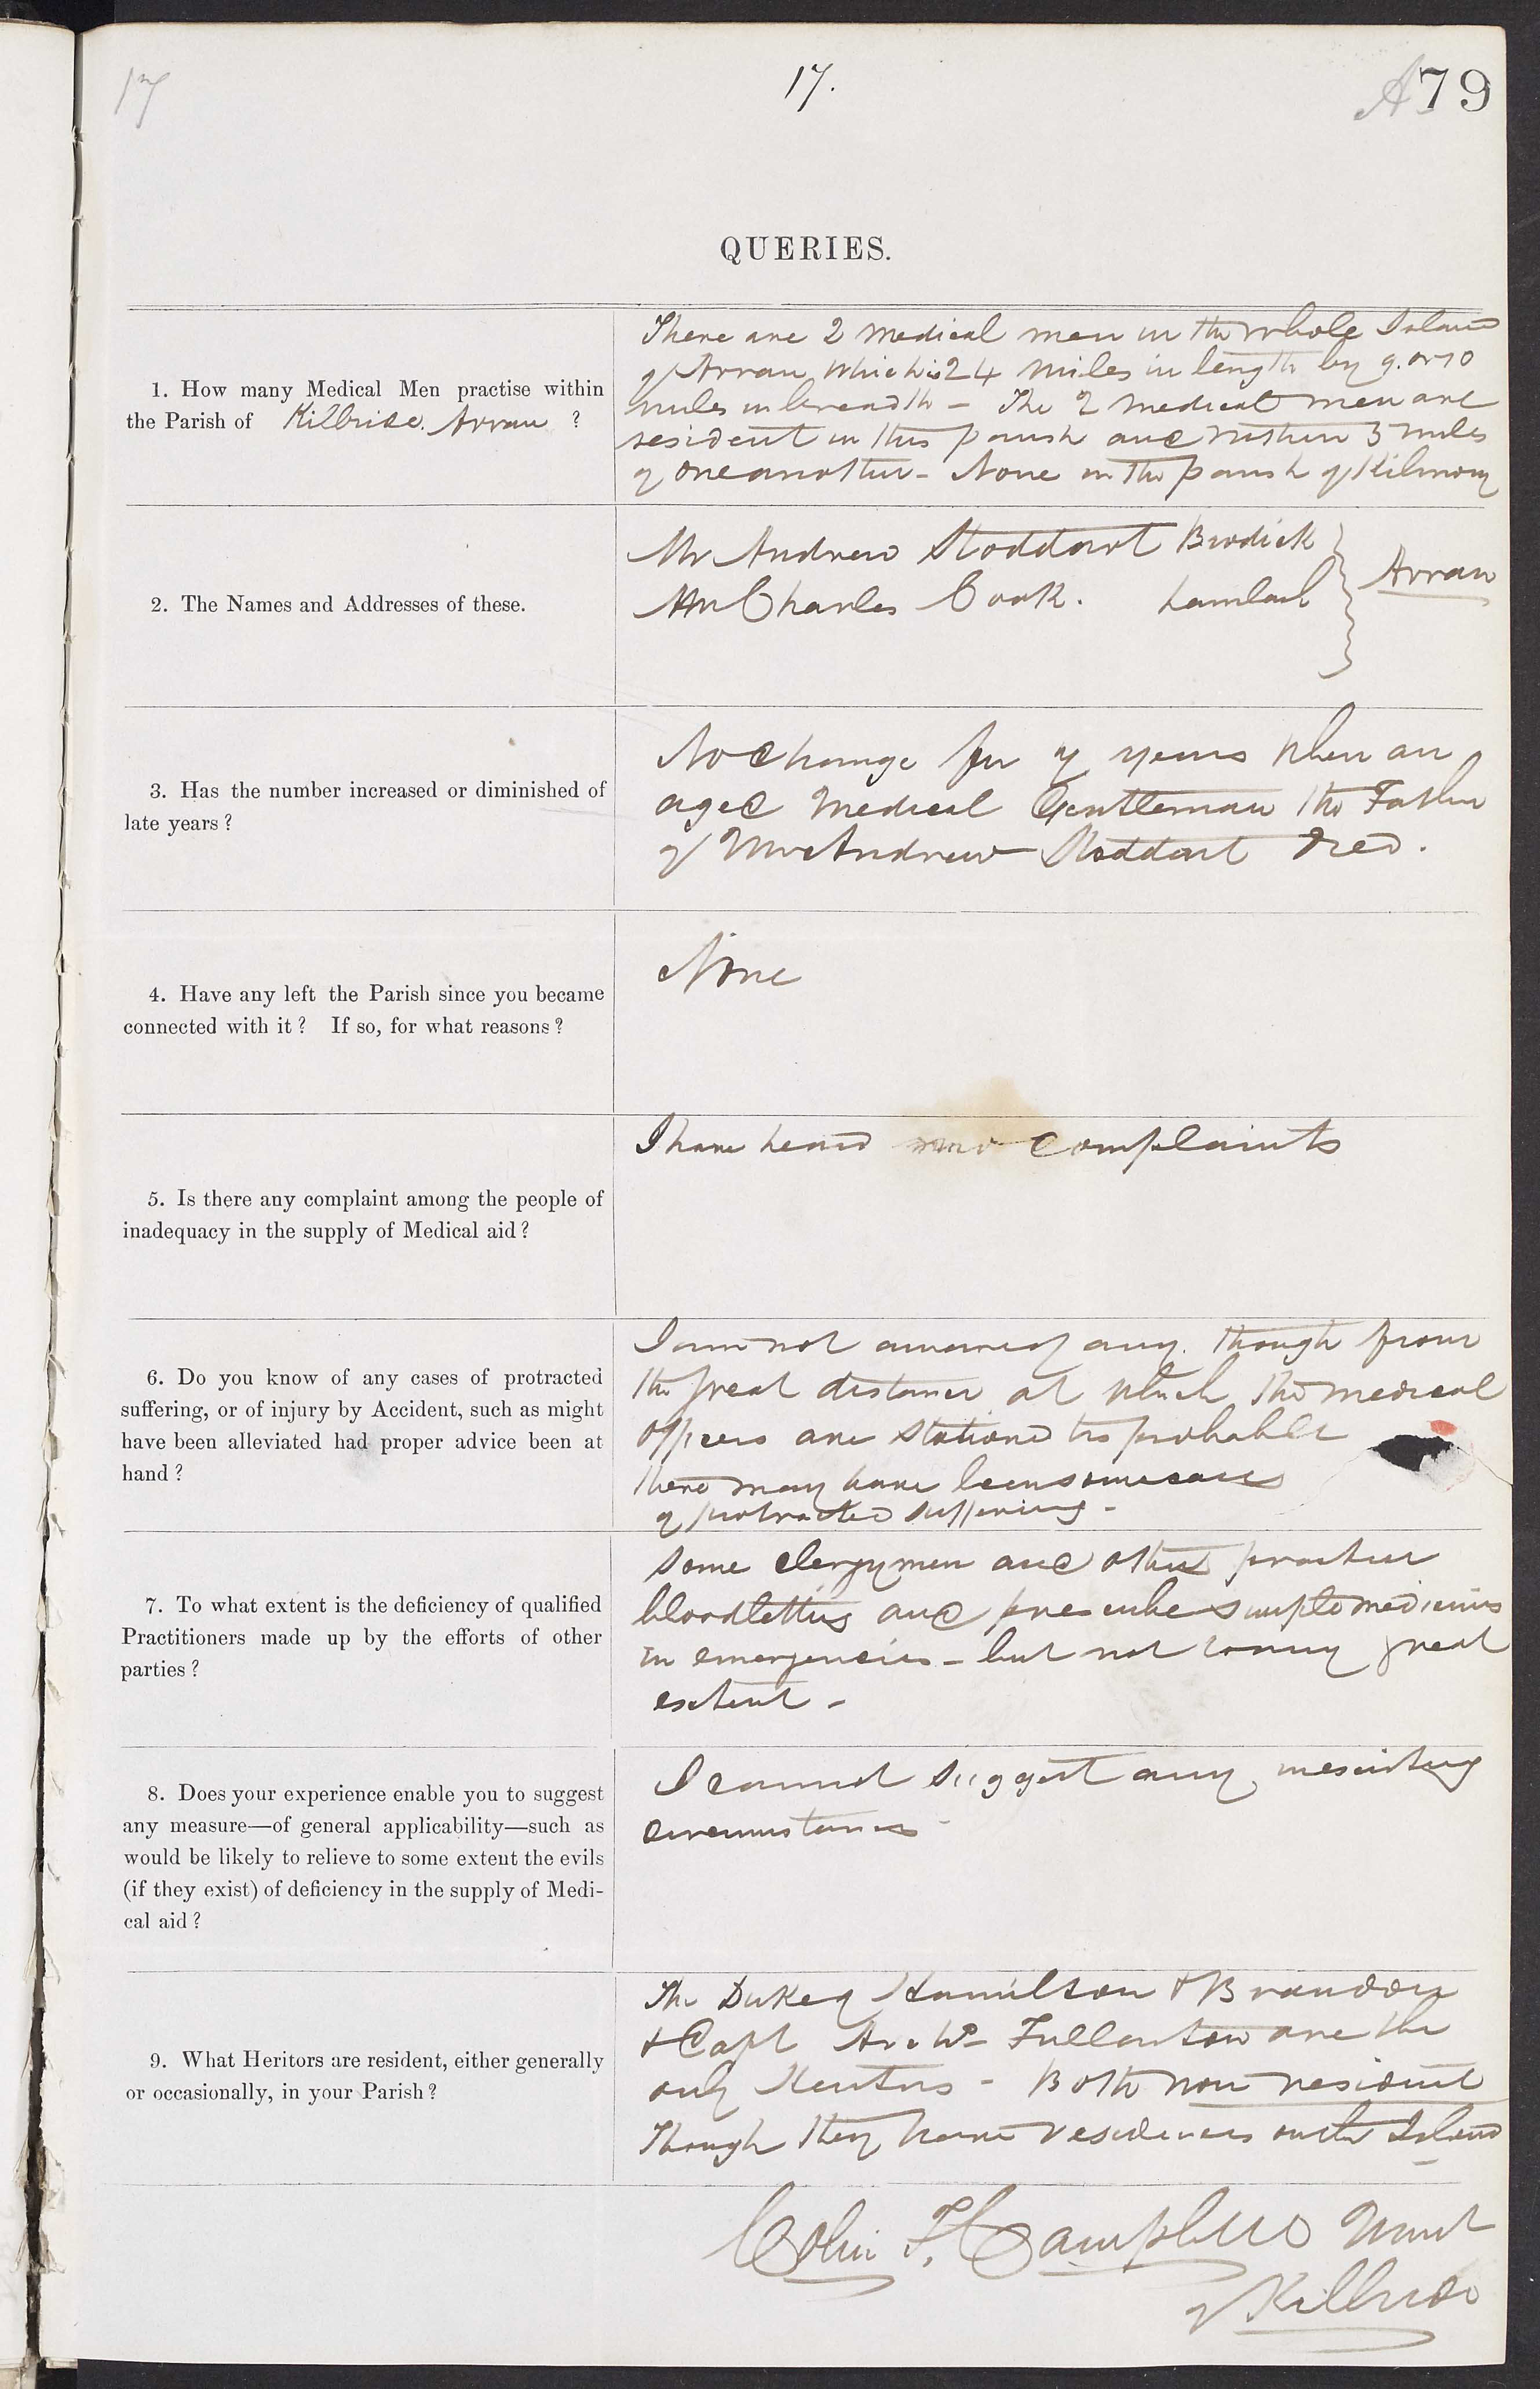 17
17.
A79
QUERIES.
1. How many Medical Men practise within
the Parish of Kilbride. Arran ?
There are 2 medical men in the whole Island
of Arran which is 24 miles in length by 9. or 10
miles in breadth - The 2 medical men are
resident in this parish and within 5 miles
of one another - None in the parish of Kilmory
2. The Names and Addresses of these.
Mr Andrew Stoddart Brodick
Mr Charles Cook. Lamlash
Arran
3. Has the number increased or diminished of
late years ?
No Change for 7 years when an
aged Medical Gentleman the Father
of Mr Andrew Stoddart died.
4. Have any left the Parish since you became
connected with it ? If so, for what reasons ?
None
5. Is there any complaint among the people of
inadequacy in the supply of Medical aid ?
I have heard no complaints
6. Do you know of any cases of protracted
suffering, or of injury by Accident, such as might
have been alleviated had proper advice been at
hand ?
I am not aware of any. though from
the great distance at which the medical
officers are stationed tis probable
there may have been some cases
of protracted suffering -
7. To what extent is the deficiency of qualified
Practitioners made up by the efforts of other
parties ?
Some Clergymen and others practise
bloodletting and prescribe simple medicines
in emergencies - but not to any great
extent -
8. Does your experience enable you to suggest
any measure—of general applicability—such as
would be likely to relieve to some extent the evils
(if they exist) of deficiency in the supply of Medi-
cal aid ?
I cannot suggest any in existing
circumstances -
9. What Heritors are resident, either generally
or occasionally, in your Parish ?
The Duke of Hamilton & Brandon
& Capt Archd Fullarton are the
only Heritors - Both non resident
Though they have residences on the Island
Colin F. Campbell Mint
of Kilbride